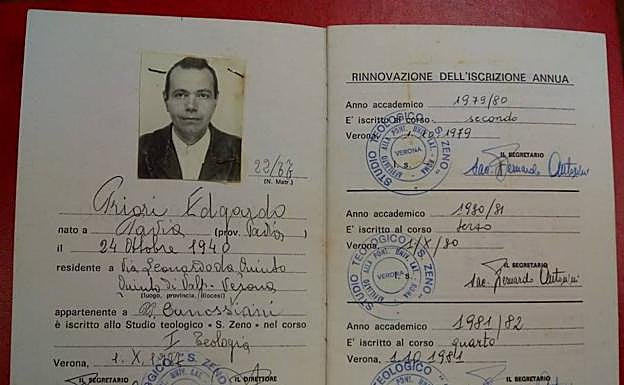 22/67
(N. Matr.)
Priori Edgardo
nato a Pavia (prov. Pavia)
il 24 Ottobre 1940
residente a Via Leonardo da Quinto
Quinto di Valp. Verona
(luogo, provincia, diocesi)
appartenente a PP. Canossiani
è iscritto allo Studio teologico « S. Zeno » nel corso
I Teologia
Verona, 1. X.
IL SEGRETARIO IL DIRETTORE
RINNOVAZIONE DELL'ISCRIZIONE ANNUA
Anno accademico 1979/80
E' iscritto al corso secondo
Verona, 1.10.1979
IL SEGRETARIO
STUDIO TEOLOGICO "S. ZENO"
VERONA
L. S.
Anno accademico 1980/81
E' iscritto al corso terzo
Verona, 1/X/80
IL SEGRETARIO
STUDIO TEOLOGICO "S. ZENO"
VERONA
L. S.
Anno accademico 1981/82
E' iscritto al corso quarto
Verona, 1.10.1981
IL SEGRETARIO